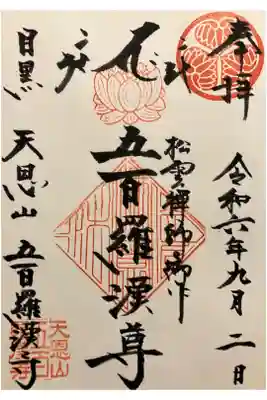 奉拝
令和六年九月二日
松雲禅師御作
五百羅漢尊
目黒
天恩山 五百羅漢寺
天恩山
五百